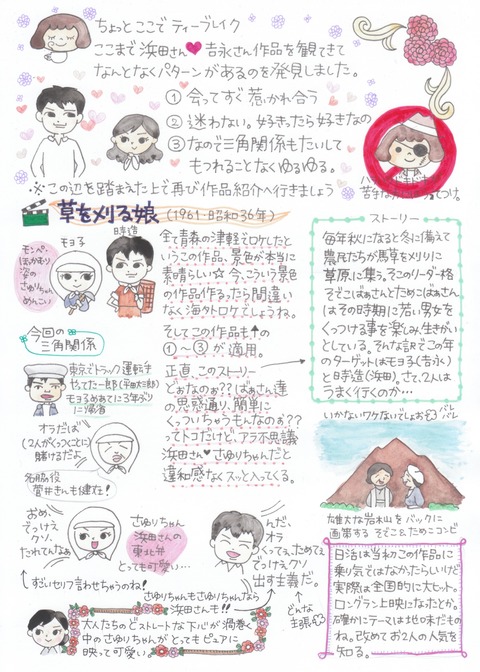 ちょっとここで ティーブレイク
ここまで 浜田さん♥吉永さん作品を観てきて
なんとなくパターンがあるのを発見しました。
① 会ってすぐ 惹かれ合う
② 迷わない。好きったら好きなの
③ なので三角関係もたいして
もつれることなくゆるゆる。
苦手な
※この辺を踏まえた上で再び作品紹介へ行きましょう
草を刈る娘 (1961・昭和36年)
モヨ子
時造
モンペ
ほおかむり
姿の
さゆりちゃん
めんこい
全て青森の津軽でロケしたと
いうこの作品、景色が本当に
素晴らしい☆ 今、こういう景色
の作品作るったら間違い
なく海外ロケでしょうね。
そしてこの作品も↑の
①〜③が適用。
正直、このストーリー
どぉなのぉ??ばぁさん達
の思惑通り、簡単に
くっついちゃうもんなのぉ??
ってトコだけど、アラ不思議
浜田さん♥さゆりちゃんだと
違和感なくスッと入ってくる。
今回の
三角関係
東京でトラック運転手
やってた一郎(平田大三郎)
モヨ子めあてに3年ぶり
に帰省
オラだば
(2人がくっつくことに)
賭けるだよ
名脇役
菅井きんも健在!
ストーリー
毎年秋になると冬に備えて
農民たちが馬草を刈りに
草原に集う。そこのリーダー格
そでこばあさんとためこばぁさん
はその時期に若い男女を
くっつける事を楽しみ、生きがい
としている。そんな訳でこの年
のターゲットはモヨ子(吉永)
と時造(浜田)。さて、2人は
うまく行くのか…
いかないワケないでしょお
バレバレ
雄大な岩木山をバックに
画策する そでこ&ためこコンビ
おめ、
でっけえ
クソ、
たれてんなぁ
すごいセリフ言わせちゃうのね!
さゆりちゃん
浜田さんの
東北弁
とっても可愛い…
んだ、
オラ
くってえ、ためてえ
でっけえクソ
出す主義だ。
どんな
主張
さゆりちゃんもさゆりちゃんなら
浜田さんも!!
大人たちのどストレートな下心が渦巻く
中のさゆりちゃんがとってもピュアに
映って可愛い。
日活は当初この作品に
乗り気ではなかったらしいが
実際は全国的に大ヒット。
ロングラン上映になったとか。
確かにテーマは地味だもの
ね。改めてお2人の人気を
知る。